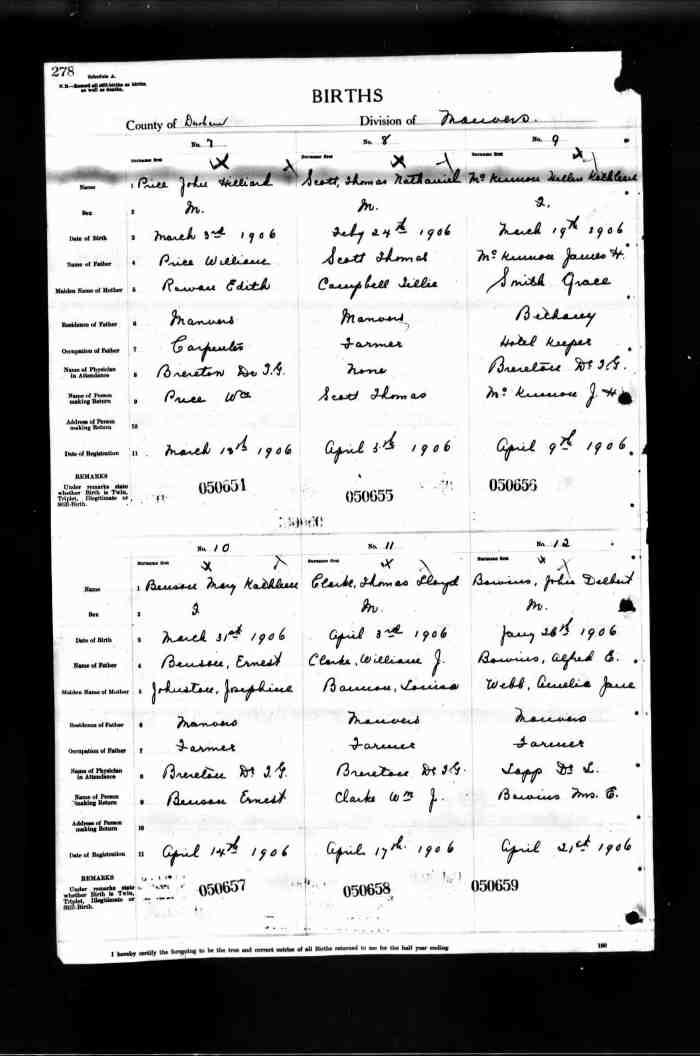 278
Schedule A.
N.B.—Record all still-births as births, as well as deaths.
BIRTHS
County of Durham Division of Manvers.
No. 7 No. 8 No. 9
Surname first Surname first Surname first
Name 1 Price John Hilliard Scott, Thomas Nathaniel McKinnon Kathleen
Sex 2 M. M. F.
Date of Birth 3 March 3rd 1906 Feby 24th 1906 March 19th 1906
Name of Father 4 Price William Scott Thomas McKinnon James H.
Maiden Name of Mother 5 Rowan Edith Campbell Tillie Smith Grace
Residence of Father 6 Manvers Manvers Bethany
Occupation of Father 7 Carpenter Farmer Hotel Keeper
Name of Physician in Attendance 8 Brereton Dr T.G. None Brereton Dr T.G.
Name of Person making Return 9 Price Wm Scott Thomas McKinnon J. H.
Address of Person making Return 10
Date of Registration 11 March 13th 1906 April 3th 1906 April 9th 1906.
REMARKS
Under remarks state whether Birth is Twin, Triplet, Illegitimate or Still-Birth.
050651 050655 050656
No. 10 No. 11 No. 12
Surname first Surname first Surname first
Name 1 Benson Mary Kathleen Clarke, Thomas Lloyd Bowins, John Delbert
Sex 2 F M. M.
Date of Birth 3 March 31st 1906 April 3rd 1906 Jany 26th 1906
Name of Father 4 Benson, Ernest Clarke, William J. Bowins, Alfred E.
Maiden Name of Mother 5 Johnston, Josephine Bannon, Louisa Webb, Amelia Jane
Residence of Father 6 Manvers Manvers Manvers
Occupation of Father 7 Farmer Farmer Farmer
Name of Physician in Attendance 8 Brereton Dr T.G. Brereton Dr T.G. Lapp Dr L.
Name of Person making Return 9 Benson Ernest Clarke Wm J. Bowins Mrs. E.
Address of Person making Return 10
Date of Registration 11 April 14th 1906 April 17th 1906 April 21st 1906
REMARKS
Under remarks state whether Birth is Twin, Triplet, Illegitimate or Still-Birth.
050657 050658 050659
I hereby certify the foregoing to be the true and correct entries of all Births returned to me for the half year ending 190